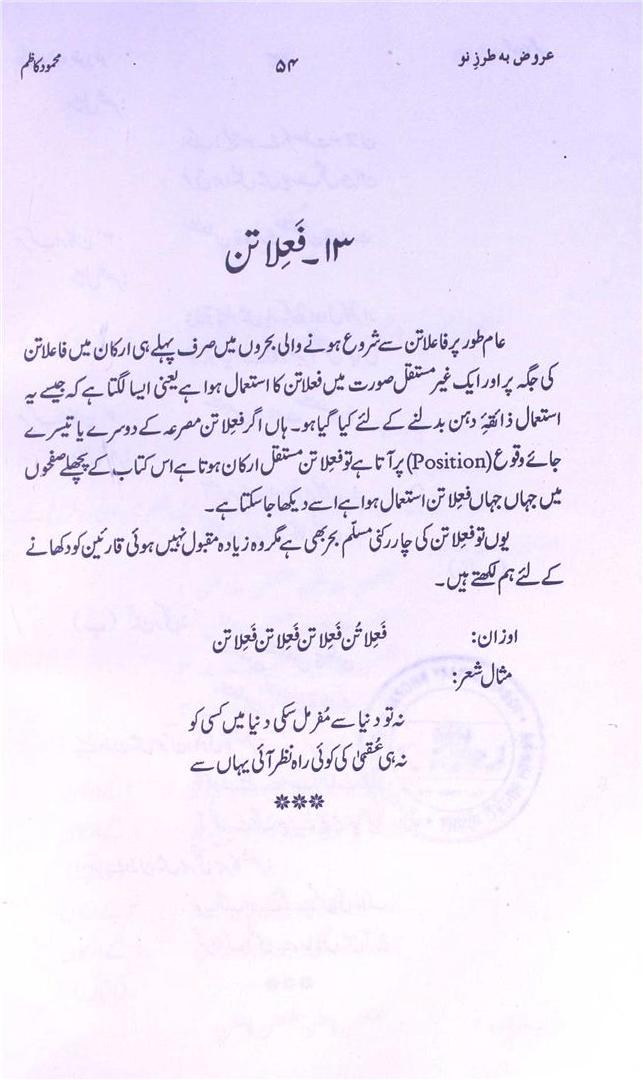 عروض بہ طرزِ نو ۵۴ محمود کاظم
۱۳۔ فَعِلاتن
عام طور پر فاعلاتن سے شروع ہونے والی بحروں میں صرف پہلے ہی ارکان میں فاعلاتن
کی جگہ پر اور ایک غیر مستقل صورت میں فعلاتن کا استعمال ہوا ہے یعنی ایسا لگتا ہے کہ جیسے یہ
استعمال ذائقۂ دہن بدلنے کے لئے کیا گیا ہو۔ ہاں اگر فعِلاتن مصرعہ کے دوسرے یا تیسرے
جائے وقوع (Position) پر آتا ہے تو فعِلاتن مستقل ارکان ہوتا ہے اس کتاب کے پچھلے صفحوں
میں جہاں جہاں فعِلاتن استعمال ہوا ہے اسے دیکھا جا سکتا ہے۔
یوں تو فعِلاتن کی چار رکنی مسلّم بحر بھی ہے مگر وہ زیادہ مقبول نہیں ہوئی قارئین کو دکھانے
کے لئے ہم لکھتے ہیں۔
اوزان: فَعِلاتُن فَعِلاتن فَعِلاتن فَعِلاتن
مثال شعر:
نہ تو دنیا سے مُفر مل سکی دنیا میں کسی کو
نہ ہی عُقبیٰ کی کوئی راہ نظر آئی یہاں سے
***